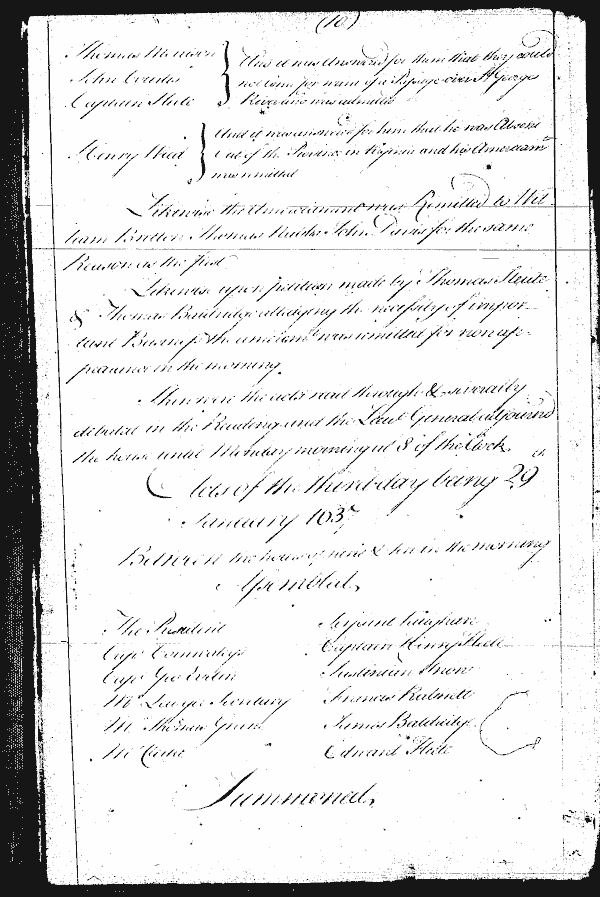 (10)
Thomas Morrison } And it was Answered for them that they could
John Courtis not come for want of a Passage over St Georges
Captain Fleete River and was admitted
Henry Wood } And it was answered for him that he was Absent
Out of the Province in Virginia and his Amerciam
was remitted
Likewise the Amerciament was Remitted to Wil-
liam Britten Thomas John Davis for the same
Reason as the first
Likewise upon petition made by Thomas Fleete
& Thomas Baldridge alledging the necessity of impor-
tant Business the amciamt was remitted for non ap-
pearance in the morning.
Then were the acts read through & severally
debated in the Reading and the Lieut General adjourned
the house until Monday morning at 8 of the Clock.
Acts of the third day being 29th
January 1637
Between the house of nine & ten in the morning
Assembled,
The President Serjeant Vaughan
Capt Cornwaleys Captain Henry Fleete
Capt Geo Evelin Justinian Snow
Mr Lewger Secretary Francis Rabnett
Mr Thomas Greene James Baldridge
Mr Clerke Edward Fleete
Summoned,